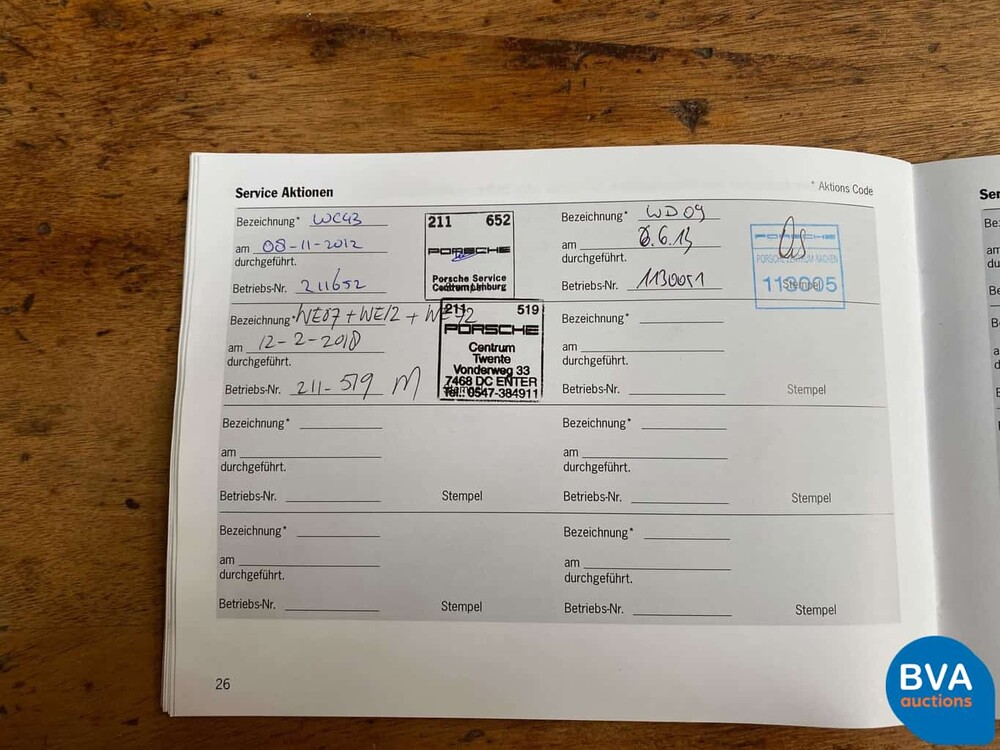 Service Aktionen
* Aktions Code
Bezeichnung* WC43
am 08-11-2012
durchgeführt.
Betriebs-Nr. 211652
211 652
PORSCHE
Porsche Service
Centrum Limburg
Bezeichnung* WD09
am 6.6.13
durchgeführt.
Betriebs-Nr. 1130051
PORSCHE
PORSCHE ZENTRUM AACHEN
113005
Stempel
Bezeichnung* WE07 + WE12 +
am 12-2-2018
durchgeführt.
Betriebs-Nr. 211-519
211 519
PORSCHE
Centrum
Twente
Vonderweg 33
7468 DC ENTER
Tel.: 0547-384911
Bezeichnung*
am
durchgeführt.
Betriebs-Nr.
Stempel
Bezeichnung*
am
durchgeführt.
Betriebs-Nr.
Stempel
Bezeichnung*
am
durchgeführt.
Betriebs-Nr.
Stempel
Bezeichnung*
am
durchgeführt.
Betriebs-Nr.
Stempel
Bezeichnung*
am
durchgeführt.
Betriebs-Nr.
Stempel
26
BVA
auctions